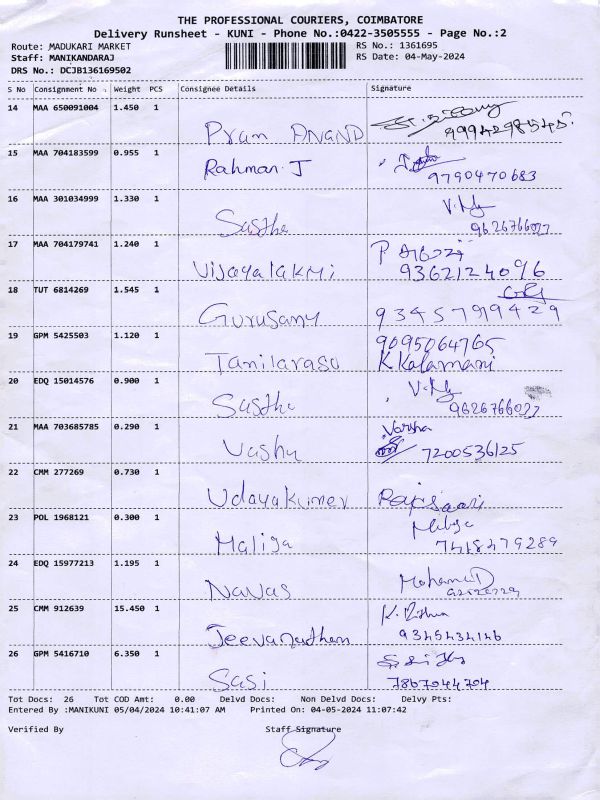 THE PROFESSIONAL COURIERS, COIMBATORE
Delivery Runsheet - KUNI - Phone No.:0422-3505555 - Page No.:2
Route: MADUKARI MARKET
RS No.: 1361695
Staff: MANIKANDARAJ
RS Date: 04-May-2024
DRS No.: DCJB136169502
S No Consignment No Weight PCS Consignee Details Signature
14 MAA 650091004 1.450 1
Pram ANAND 9994298545
15 MAA 704183599 0.955 1
Rahman. J 9790470683
16 MAA 301034999 1.330 1
Sasthe 9626766027
17 MAA 704179741 1.240 1
Vijayalakmi 9362124096
18 TUT 6814269 1.545 1
Gurusamy 9345799429
19 GPM 5425503 1.120 1
9095064765
Tamilarasu K Kalamani
20 EDQ 15014576 0.900 1
Sasthe 9626766027
21 MAA 703685785 0.290 1
Varsha
Vashu 7200536125
22 CMM 277269 0.730 1
Udayakumer
23 POL 1968121 0.300 1
Maliga 7418479289
24 EDQ 15977213 1.195 1
Navas Mohamed
25 CMM 912639 15.450 1
Jeevanantham 9345434146
26 GPM 5416710 6.350 1
Sasi 7867044704
Tot Docs: 26 Tot COD Amt: 0.00 Delvd Docs: Non Delvd Docs: Delvy Pts:
Entered By :MANIKUNI 05/04/2024 10:41:07 AM Printed On: 04-05-2024 11:07:42
Verified By Staff Signature